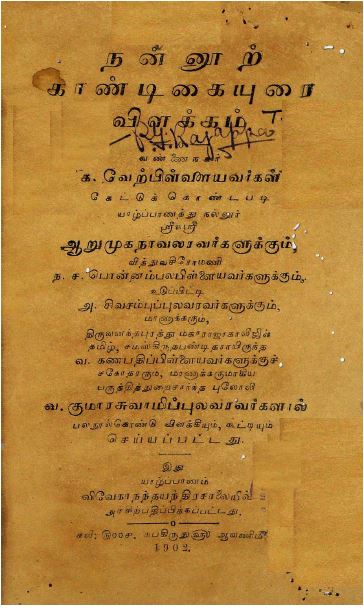 நன்னூற்
காண்டிகையுரை
விளக்கம்.
வண்ணைநகர்
க. வேற்பிள்ளையவர்கள்
கேட்டுக்கொண்டபடி
யாழ்ப்பாணத்து நல்லூர்
ஸ்ரீலஸ்ரீ
ஆறுமுகநாவலரவர்களுக்கும்,
வித்துவசிரோமணி
ந. ச. பொன்னம்பலபிள்ளையவர்களுக்கும்,
உடுப்பிட்டி
அ. சிவசம்புப்புலவரவர்களுக்கும்,
மாணாக்கரும்,
திருவனந்தபுரத்து மகாராஜாகாலிஜின்
தமிழ், சமஸ்கிருதபண்டிதராயிருந்த
வ. கணபதிப்பிள்ளையவர்களுக்குச்
சகோதரரும், மாணாக்கருமாகிய
பருத்தித்துறைசார்ந்த புலோலி
வ. குமாரசுவாமிப்புலவரவர்களால்
பலநூல்கொண்டு விளக்கியும், கூட்டியும்
செய்யப்பட்டது.
இது
யாழ்ப்பாணம்
விவேகாநந்தயந்திரசாலையில்
அச்சிற்பதிப்பிக்கப்பட்டது.
சுபகிருதுஸ்ரீ ஆவணிமீ
1902.